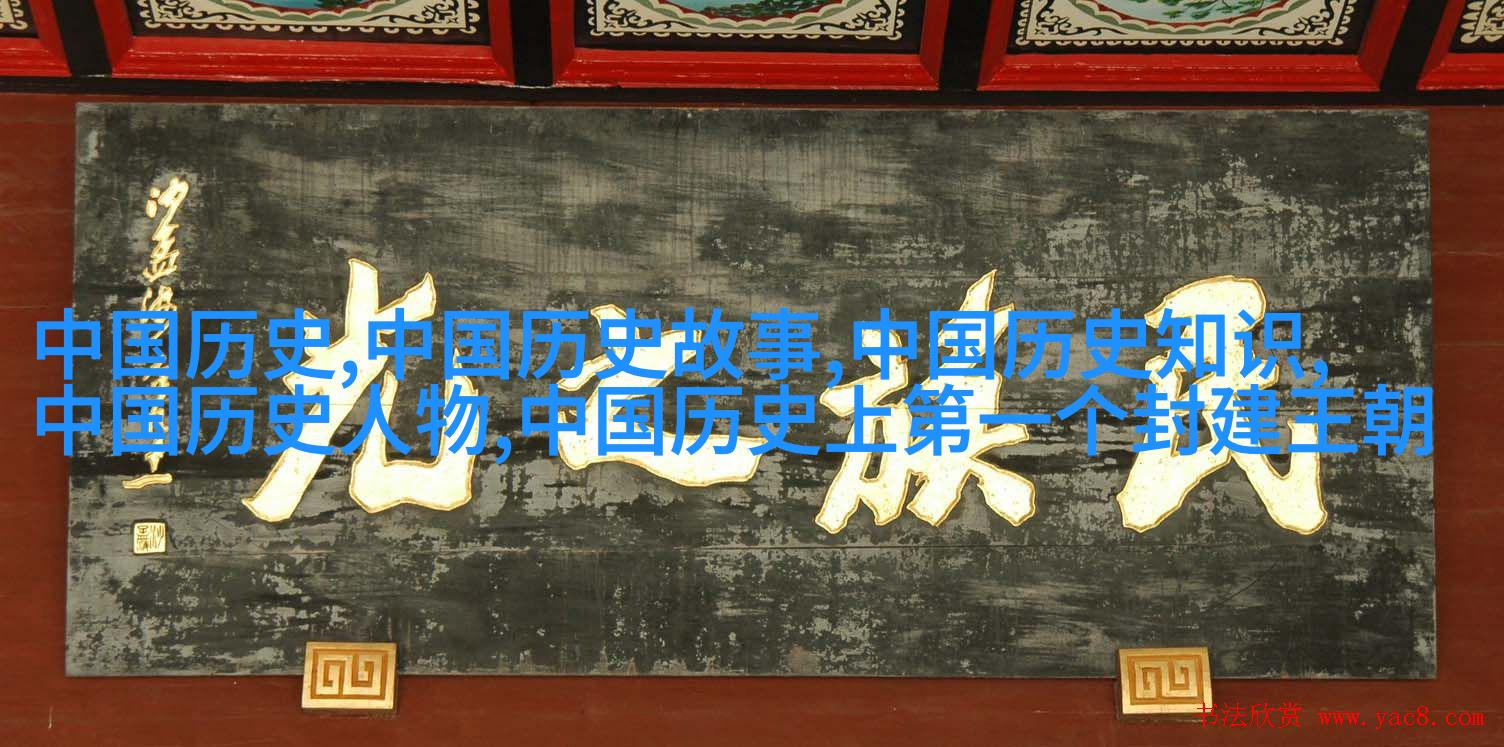 中国历史,中国历史故事,中国历史知识,
中国历史人物,中国历史上第一个封建王朝
民族之光
沙孟海
书法欣赏 www.yac8.com